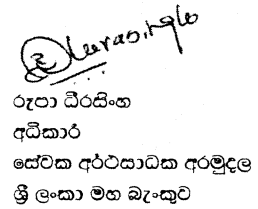 රූපා ධීරසිංහ
අධිකාරී
සේවක අර්ථසාධක අරමුදල
ශ්‍රී ලංකා මහ බැංකුව